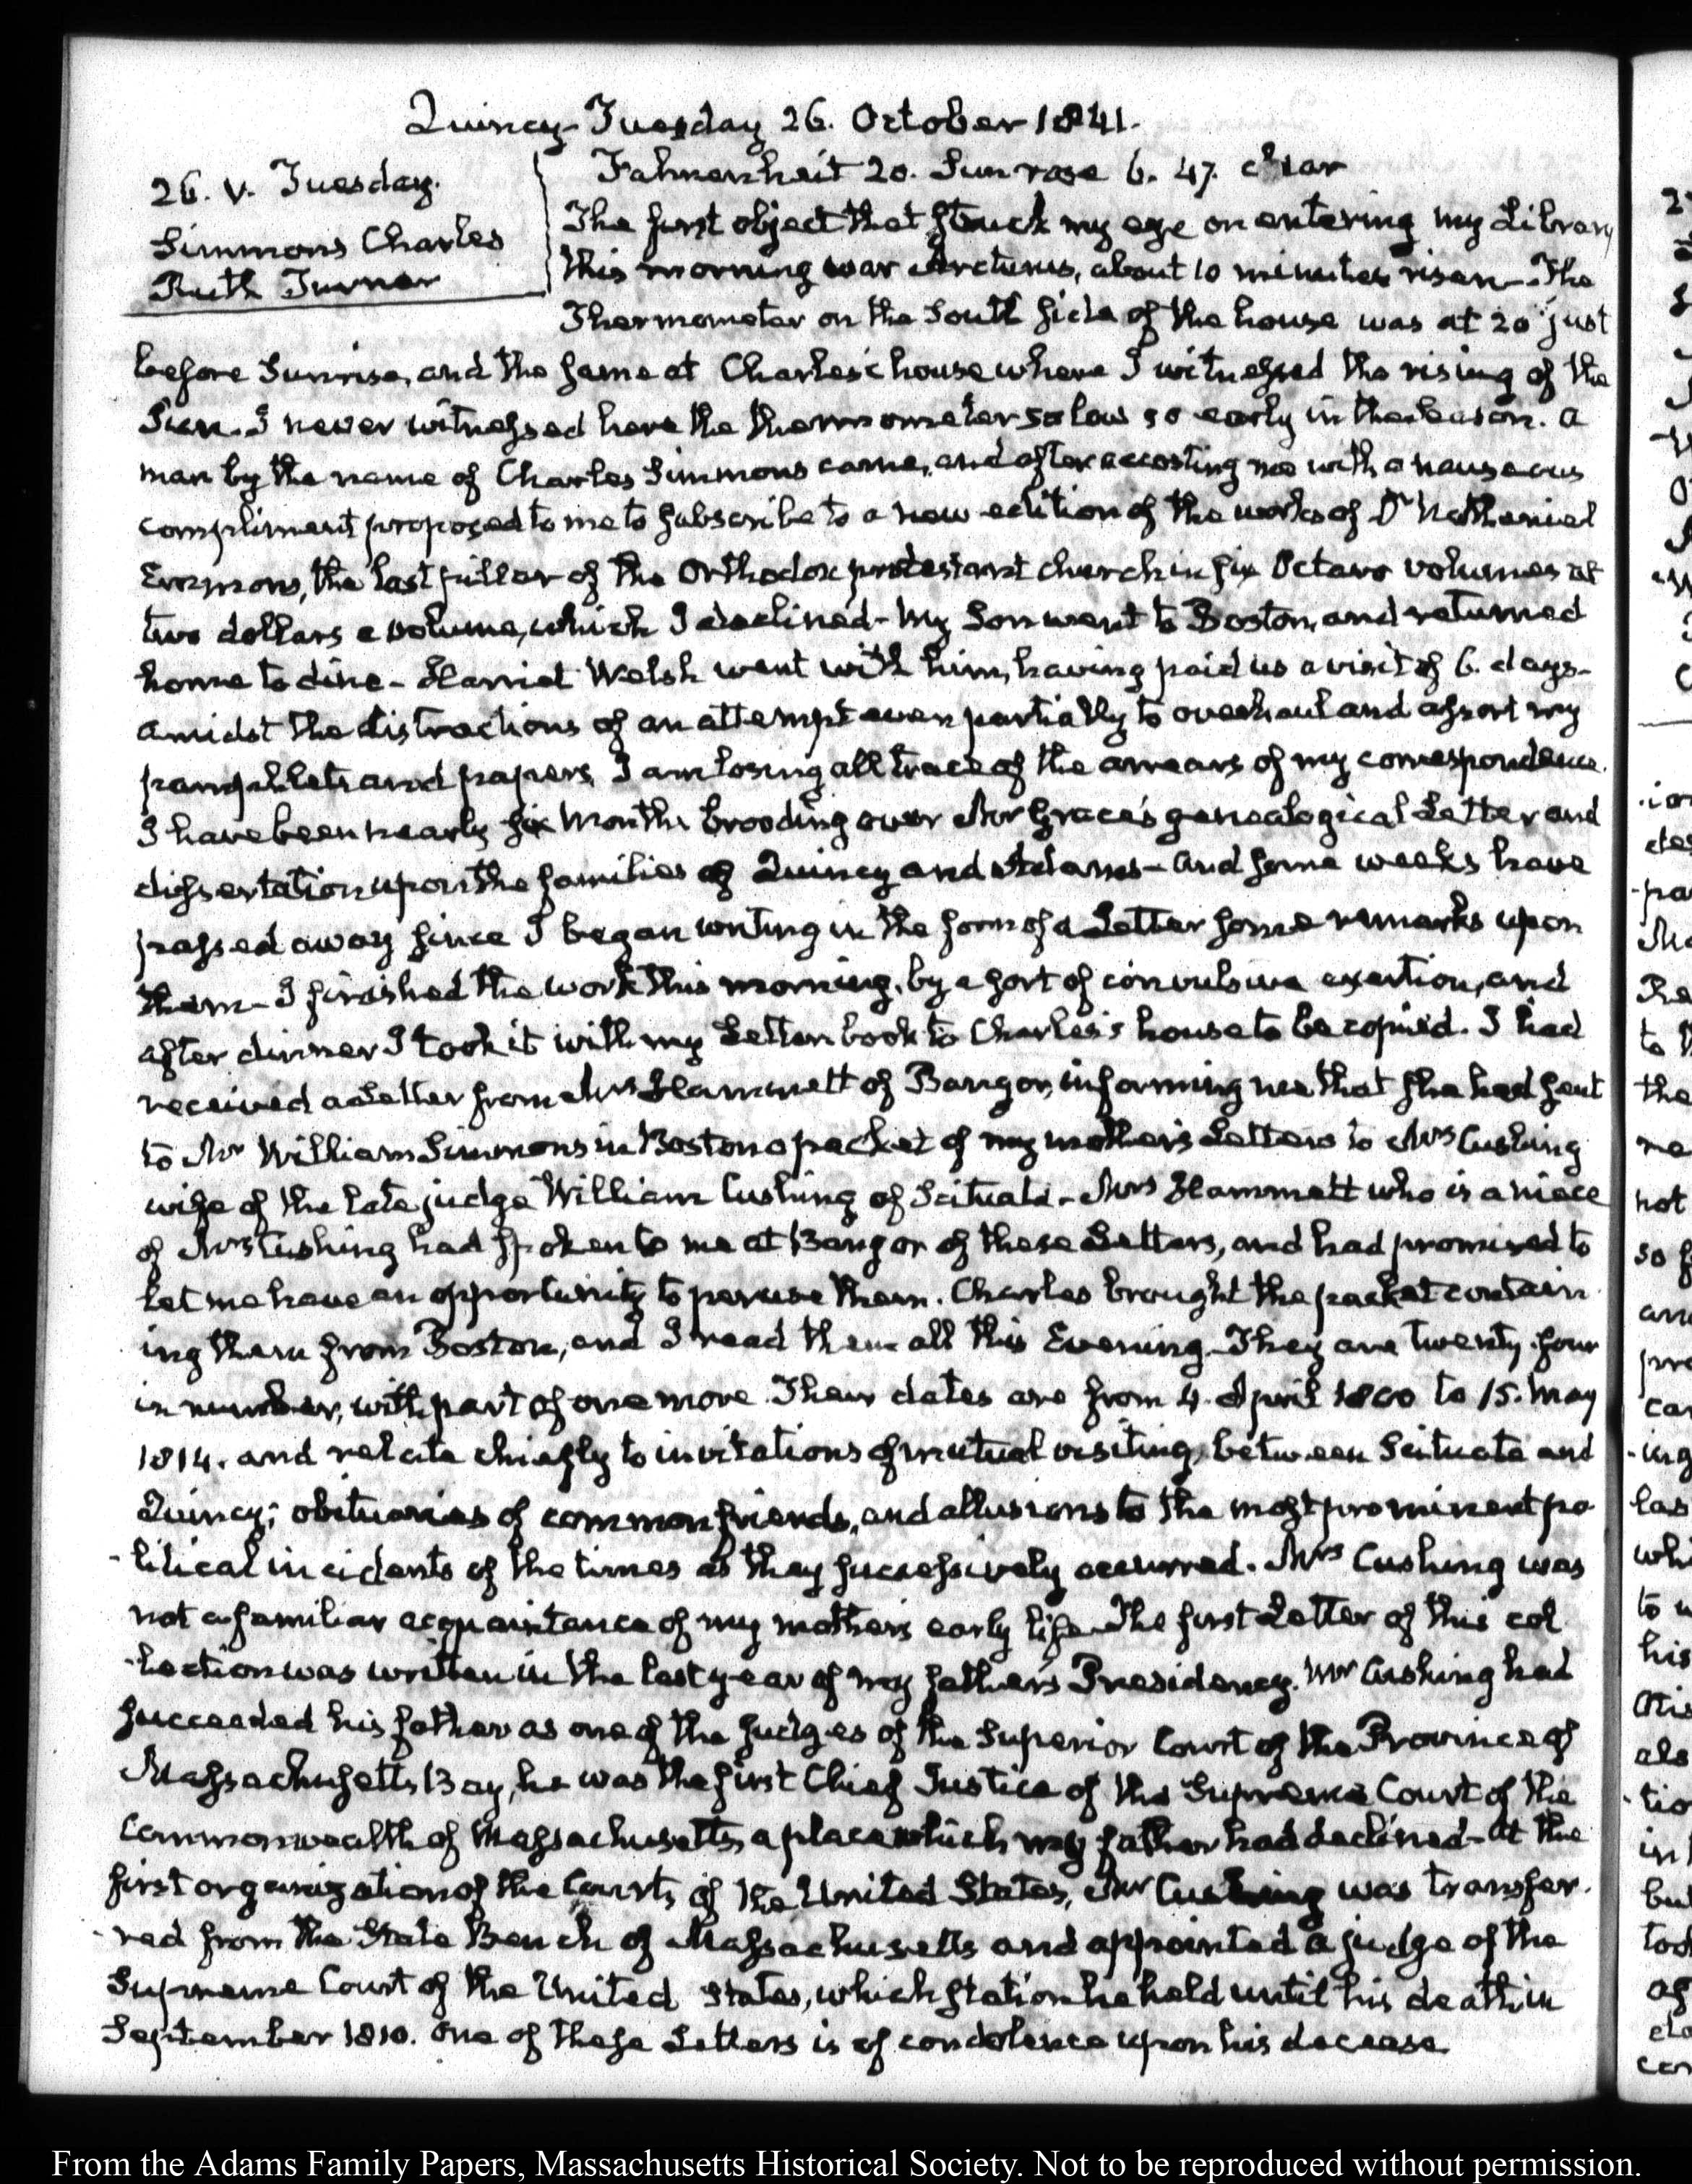 Quincy Tuesday 26. October 1841.
26. V. Tuesday.
Simmons Charles
Ruth Turner
Fahrenheit 20. Sun rose 6. 47. clear
The first object that struck my eye on entering my Library
this morning was Arcturus, about 10 minutes risen — The
Thermometer on the South side of the house was at 20 just
before Sunrise, and the same at Charles's house where I witnessed the rising of the
Sun. I never witnessed here the thermometer so low so early in the season. A
man by the name of Charles Simmons came, and after accosting me with a nauseous
compliment proposed to me to subscribe to a new edition of the works of Dr Nathaniel
Emmons, the last pillar of the Orthodox protestant church in six Octavo volumes at
two dollars a volume, which I declined - My Son went to Boston, and returned
home to dine - Harriet Welsh went with him, having paid us a visit of 6. days -
Amidst the distractions of an attempt even partially to overhaul and assort my
pamphlets and papers, I am losing all trace of the arrears of my correspondence.
I have been nearly six Months brooding over Mr Grace's genealogical Letter and
dissertation upon the families of Quincy and Adams - and some weeks have
passed away since I began writing in the form of a Letter some remarks upon
them - I finished the work this morning, by a sort of convulsive exertion, and
after dinner I took it with my Letter book to Charles's house to be copied. I had
received a Letter from Mrs Hammett of Bangor, informing me that she had sent
to Mr William Simmons in Boston a packet of my mother's Letters to Mrs Cushing
wife of the late judge William Cushing of Scituate - Mrs Hammett who is a niece
of Mrs Cushing had spoken to me at Bangor of these Letters, and had promised to
let me have an opportunity to peruse them. Charles brought the packet contain
ing them from Boston, and I read them all this Evening. They are twenty-four
in number, with part of one more. Their dates are from 4. April 1800 to 15. May
1814. and relate chiefly to invitations of mutual visiting, between Scituate and
Quincy; obituaries of common friends, and allusions to the most prominent po
-litical incidents of the times as they successively occurred. Mrs Cushing was
not a familiar acquaintance of my mother's early life. The first Letter of this col
-lection was written in the last year of my father's Presidency. Mr Cushing had
succeeded his father as one of the judges of the Superior Court of the Province of
Massachusetts Bay, he was the first Chief Justice of the Supreme Court of the
Commonwealth of Massachusetts, a place which my father had declined - At the
first organization of the Courts of the United States, Mr Cushing was transfer-
-red from the State Bench of Massachusetts and appointed a judge of the
Supreme Court of the United States, which station he held until his death in
September 1810. One of these Letters is of condolence upon his decease
From the Adams Family Papers, Massachusetts Historical Society. Not to be reproduced without permission.